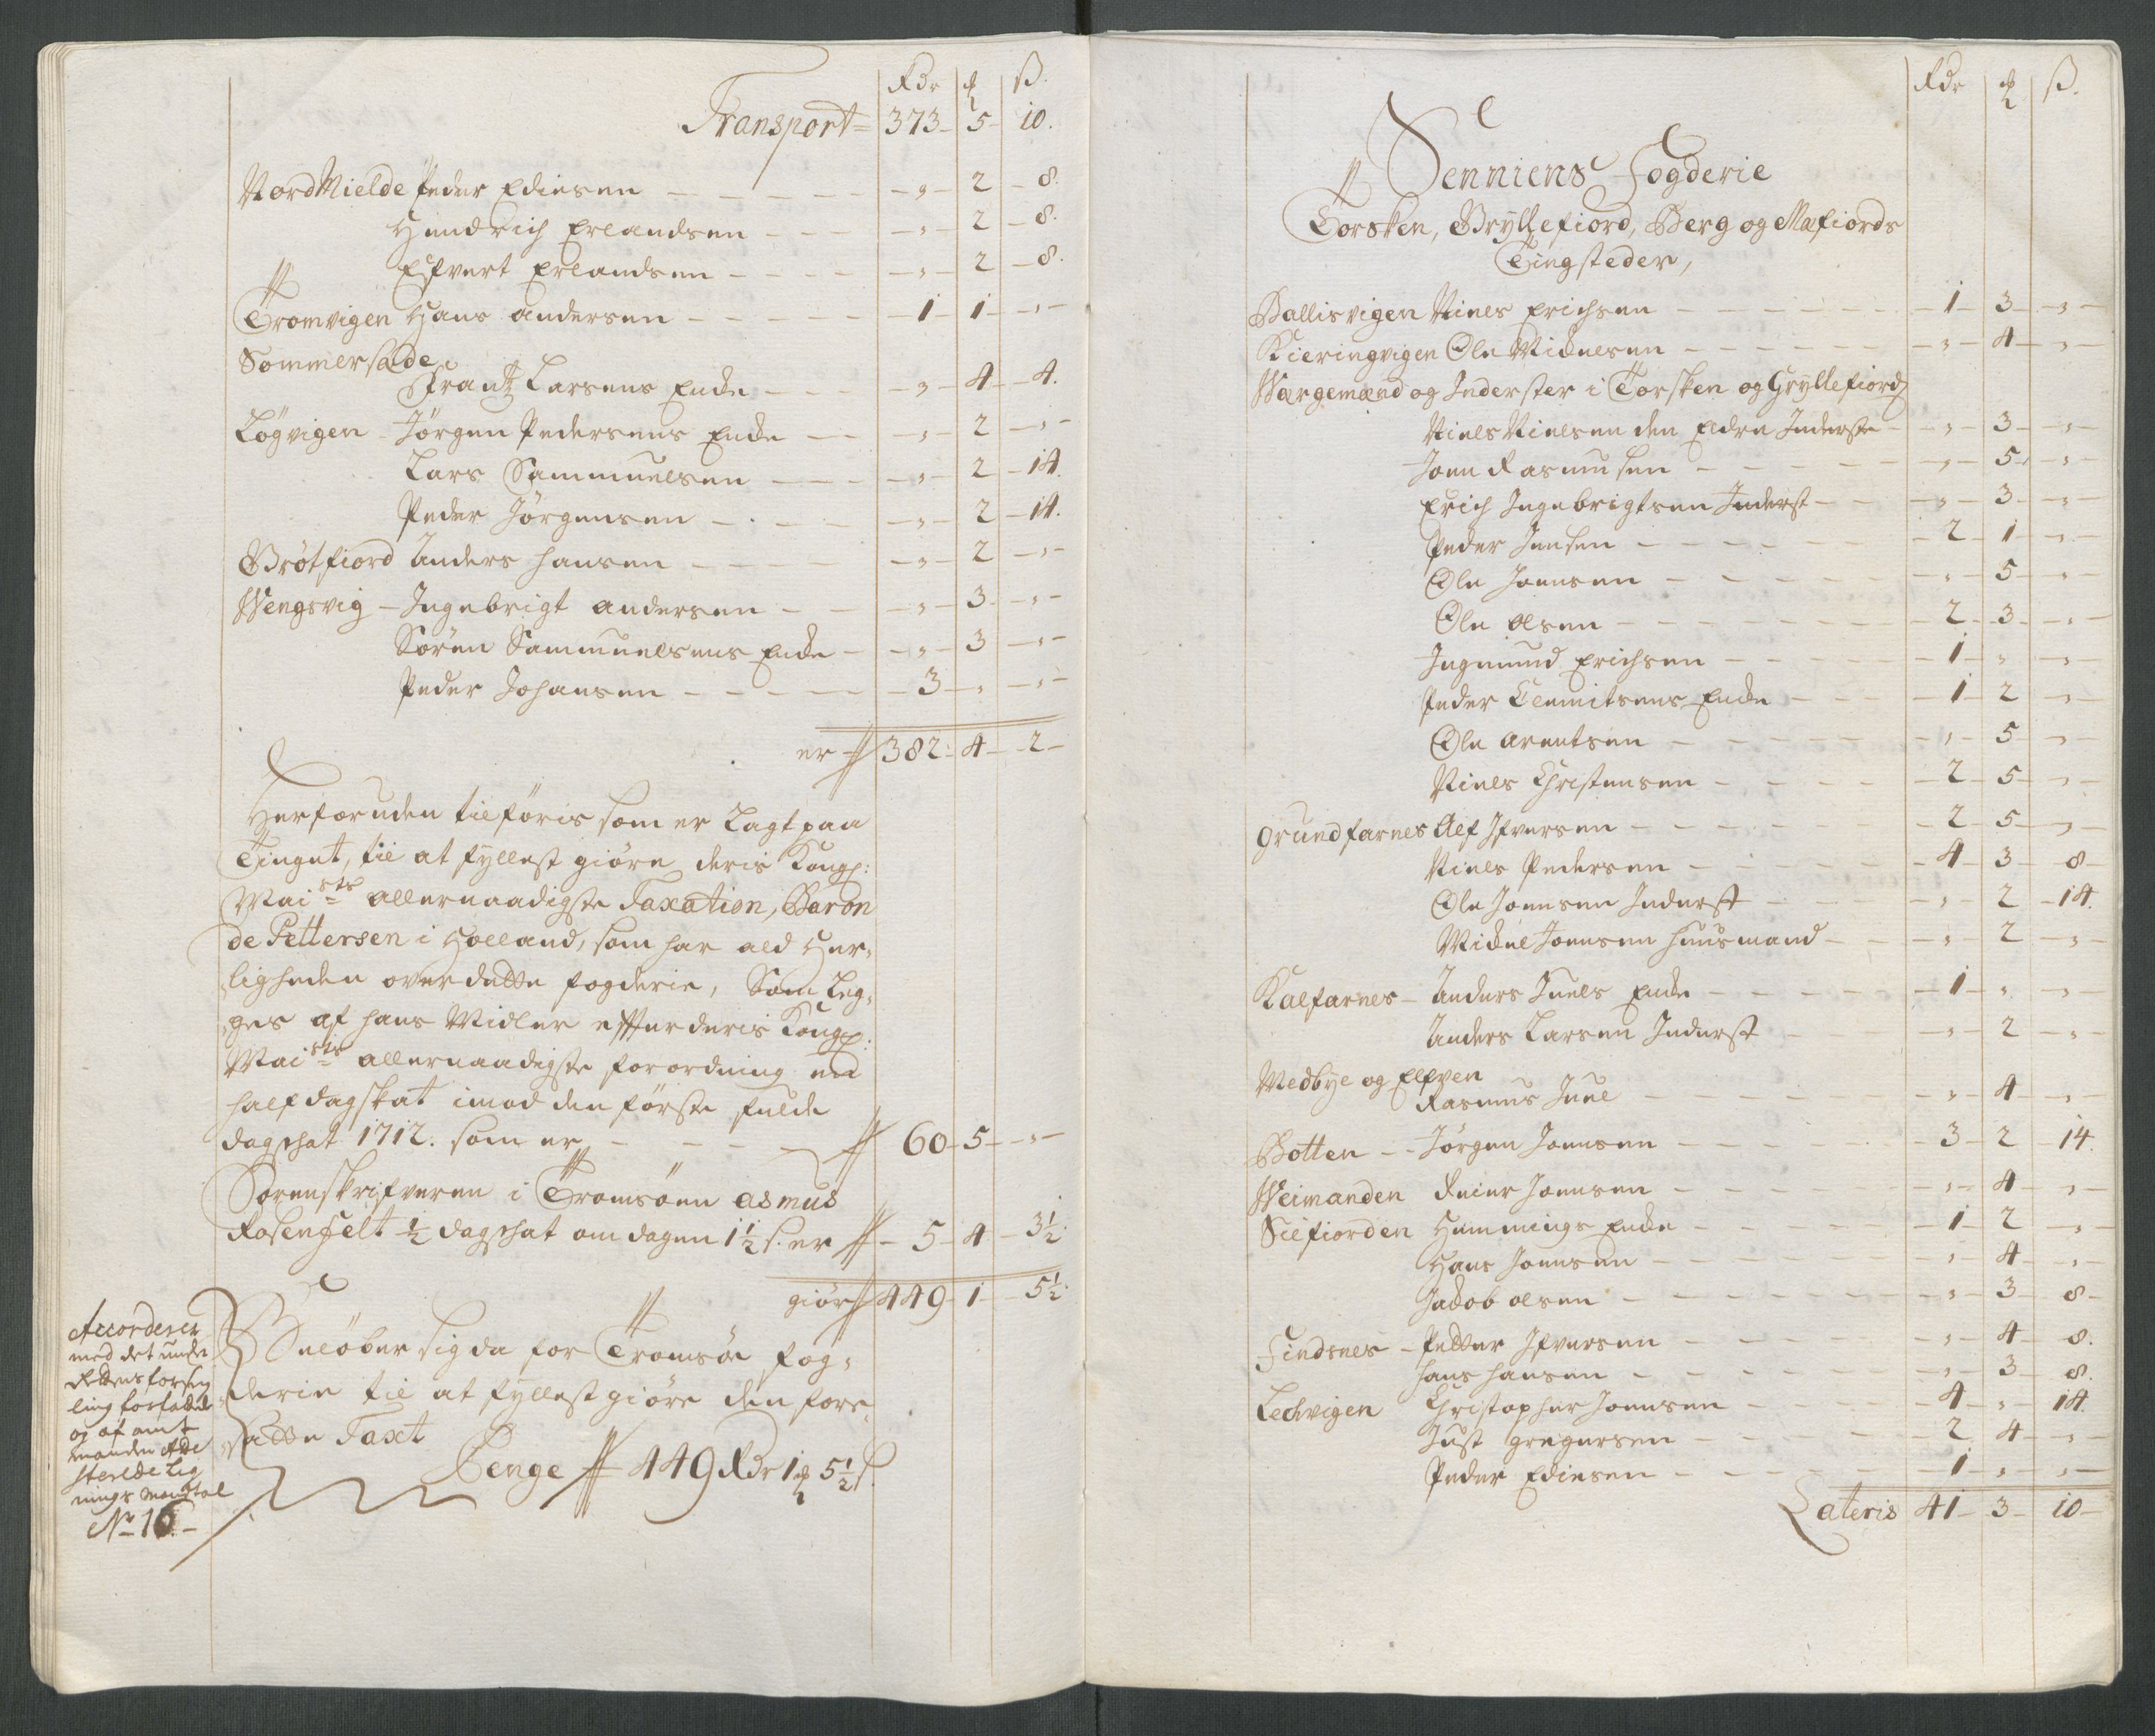 Rdr ꝟ ß.
Transport= 373 - 5 - 10.
NordMielde Peder Ediesen - - - - „ - 2 - 8.
Hendrich Erlandsen - - - „ - 2 - 8.
Efvert Erlandsen - - - - „ - 2 - 8.
Tromvigen Hans andersen - - - - - 1 - 1 - „ -
Sommersæde
Frantz Larsens Encke - - - „ - 4 - 4.
Løgvigen - Jørgen Pedersens Encke - - „ - 2 - „ -
Lars Sammuelsen - - - „ - 2 - 14.
Peder Jørgensen - - - - „ - 2 - 14.
Grøtfiord Anders hansen - - - - „ - 2 - „ -
Wengsvig - Ingebrigt andersen - - „ - 3 - „ -
Søren Sammuelsens Encke - - „ - 3 - „ -
Peder Johansen - - - - - 3 - „ - „ -
er 382 - 4 - 2 -
Herforuden tilføris som er Lagt paa
Tinget, til at fyllest giøre deris Kongl:
Mai:sts allernaadigste Taxation, Baron
de Pettersen i Holland, som har ald Her-
ligheden over dette fogderie, Som Leg-
ges af hans Midler efter deris Kongl:
Mai:sts allernaadigste forordning en
half dagskat imod den første fulde
dagschat 1712. som er - - - - 60 - 5 - „ -
Sorenskrifveren i Tromsøen asmus
Rosenfelt ½ dagschat om dagen 1½ s. er - 5 - 4 - 3½.
giør 449 - 1 - 5½.
Beløber sig da for Tromsøe fog-
derie til at fyllestgiøre den fore-
satte Taxt
Penge 449 Rdr 1 ꝟ 5½ s.
Accorderer
med det under
Rettens forseg
ling forfattede
og af amt
manden Atte
sterede Lig
nings Mandtal
No 16 -
Rdr ꝟ ß.
Senniens Fogderie
Torsken, Gryllefiord, Berg og Mefiords
Tingsteder,
Ballisvigen Niels Erichsen - - - - - - 1 - 3 - „ -
Kieringvigen Ole Mickelsen - - - - - - „ - 4 - „ -
Wærgemænd og Inderster i Torsken og Gryllefiord
Niels Nielsen den Eldre Inderste - - „ - 3 - „ -
Joen Rasmusen - - - - - - „ - 5 - „ -
Erich Ingebrigtsen Inderst - - - „ - 3 - „ -
Peder Jensen - - - - - - 2 - 1 - „ -
Ole Joensen - - - - - - „ - 5 - „ -
Ole olsen - - - - - - - 2 - 3 - „ -
Ingmund Erichsen - - - - - 1 - „ - „ -
Peder Clemitsens Encke - - - - 1 - 2 - „ -
Ole arentsen - - - - - - „ - 5 - „ -
Niels Christensen - - - - - 2 - 5 - „ -
Grundfarnes Alf Ifversen - - - - - 2 - 5 - „ -
Niels Pedersen - - - - - - 4 - 3 - 8 -
Ole Joensen Inderst - - - - „ - 2 - 14.
Mickel Joensen huusmand - - - „ - 2 - „ -
Kalfarnes - Anders Juels Encke - - - - - 1 - „ - „ -
Anders Larsen Inderst - - - „ - 2 - „ -
Medbye og Elfven
Rasmus Juel - - - - - - „ - 4 - „ -
Botten - - Jørgen Joensen - - - - - 3 - 2 - 14.
Weimanden Reier Joensen - - - - - „ - 4 - „ -
Silfiorden Hemmings Encke - - - - - 1 - 2 - „ -
Hans Joensen - - - - - - „ - 4 - „ -
Jacob olsen - - - - - - - „ - 3 - 8 -
Findsnes - Petter Ifversen - - - - - „ - 4 - 8.
hans hansen - - - - - - „ - 3 - 8.
Lechvigen Christopher Joensen - - - - 4 - „ - 14.
Just gregersen - - - - - - 2 - 4 - „ -
Peder Ediesen - - - - - - 1 - „ - „ -
Lateris 41 - 3 - 10 -